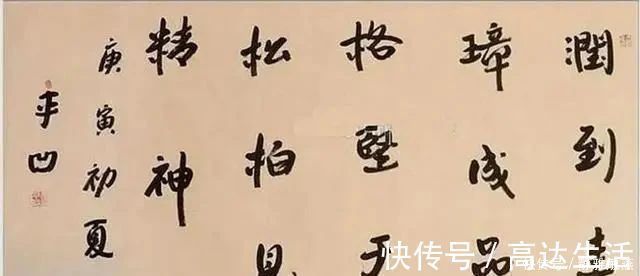 潤到圭
璋成品
格堅天
松柏見
精神
庚寅初夏
平凹
快传号 / 高达生活